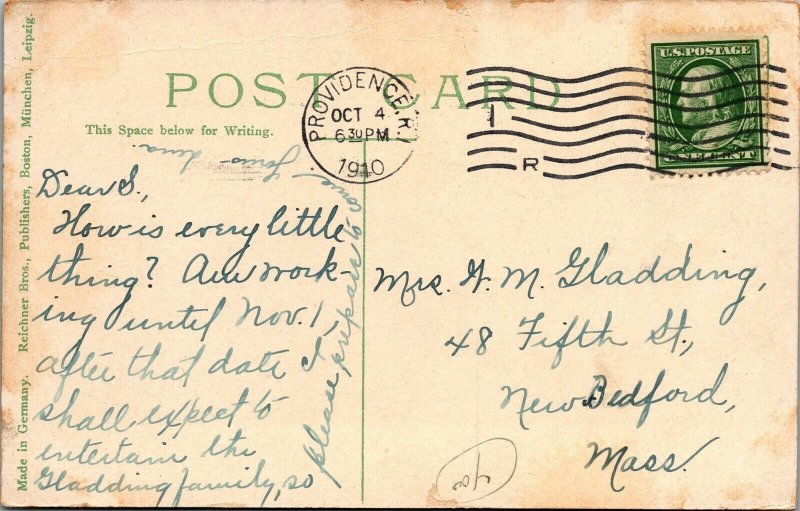 POST CARD
This Space below for Writing.
Made in Germany. Reichner Bros., Publishers, Boston, München, Leipzig.
PROVIDENCE, R.I.
OCT 4
6 30 PM
1910
I
R
U.S. POSTAGE
ONE CENT
Dear S.,
How is every little
thing? Am work-
ing until Nov. 1,
after that date I
shall expect to
entertain the
Gladding family, so
please prepare to come
Lena
Mrs. H. M. Gladding,
48 Fifth St.,
New Bedford,
Mass.